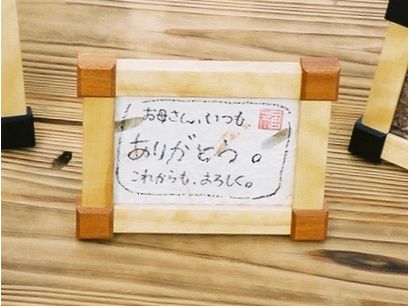 お母さん、いつも
ありがとう。
これからも、よろしく。
福